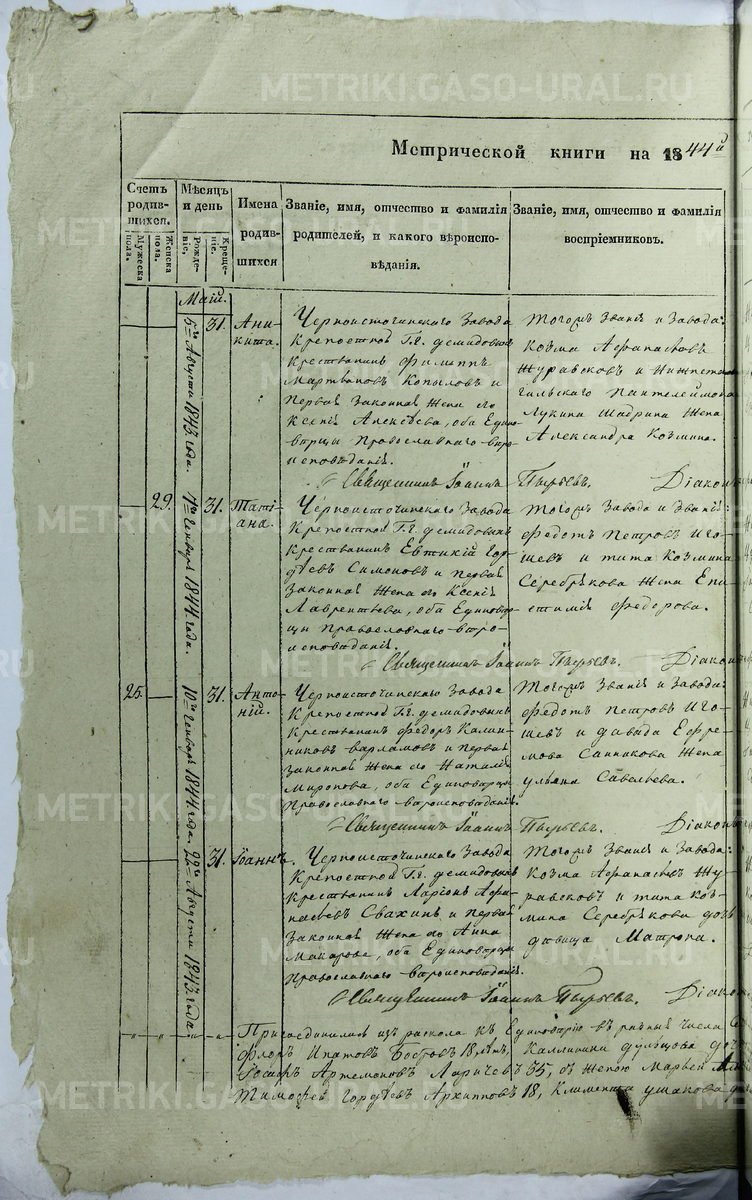 METRIKI.GASO-URAL.RU
Метрической книги на 1844й
Счетъ родив-шихся.
Мужеска пола.
Женска пола.
Мѣсяцъ и день
Рожде-ніе.
Креще-ніе.
Имена родив-шихся
Званіе, имя, отчество и фамилія
родителей, и какого вѣроиспо-
вѣданія.
Званіе, имя, отчество и фамилія
воспріемниковъ.
Маій.
5го Августа 1843. года.
31.
Ани-
кита.
Черноисточинскаго Завода
Крепостной Г.г. демидовыхъ
Крестьянинъ Филиппъ
Мартьяновъ Копыловъ и
Первая Законная Жена его
Ксенія Алексѣева, оба Едино-
вѣрцы Православнаго вѣро-
исповѣданія.
Тогожъ Званія и Завода:
Козма Афанасьевъ
Журавсковъ и Нижнета-
гильскаго Пантелеймона
Лукина Шадрина Жена
Александра Козмина.
Священникъ Іоаннъ Пырьевъ. Діаконъ
29.
1го Генваря 1844. года.
31.
Таті-
ана.
Черноисточинскаго Завода
Крепостной Г.г. демидовыхъ
Крестьянинъ Евтихій Гор-
дѣевъ Симоновъ и Первая
Законная Жена его Ксенія
Лаврентьева, оба Единовѣр-
цы Православнаго вѣро-
исповѣданія.
Тогожъ Завода и Званія:
Федотъ Петровъ Иго-
шевъ и тита Козмина
Серебрякова Жена Епи-
стимія Федорова.
Священникъ Іоаннъ Пырьевъ. Діаконъ
25.
10го Генваря 1844. года.
31.
Анто-
ній.
Черноисточинскаго Завода
Крепостной Г.г. демидовыхъ
Крестьянинъ Федоръ Калин-
никовъ варламовъ и Первая
Законная Жена его Наталія
Миронова, оба Единовѣрцы
Православнаго вѣроисповѣданія.
Тогожъ Званія и Завода:
Федотъ Петровъ Иго-
шевъ и давида Ефре-
мова Санникова Жена
ульяна Савельева.
Священникъ Іоаннъ Пырьевъ. Діаконъ
22го Августа 1843. года
31.
Іоаннъ.
Черноисточинскаго Завода
Крепостной Г.г. демидовыхъ
Крестьянинъ Ларіонъ Афа-
насьевъ Свахинъ и Первая
Законная Жена его Анна
Макарова, оба Единовѣрцы
Православнаго вѣроисповѣданія.
Тогожъ Званія и Завода:
Козма Афанасьевъ Жу-
равсковъ и тита Коз-
мина Серебрякова дочь
дѣвица Матрона.
Священникъ Іоаннъ Пырьевъ. Діаконъ
Присоединились изъ раскола къ Единовѣрію въ разныя числа
Флоръ Ипатовъ Бостровъ 18 лѣтъ, Калинина дульцова доч
Артемоновъ Ларичевъ 35, съ Женою
Тимофѣй Гордѣевъ Архиповъ 18, Климента ушакова